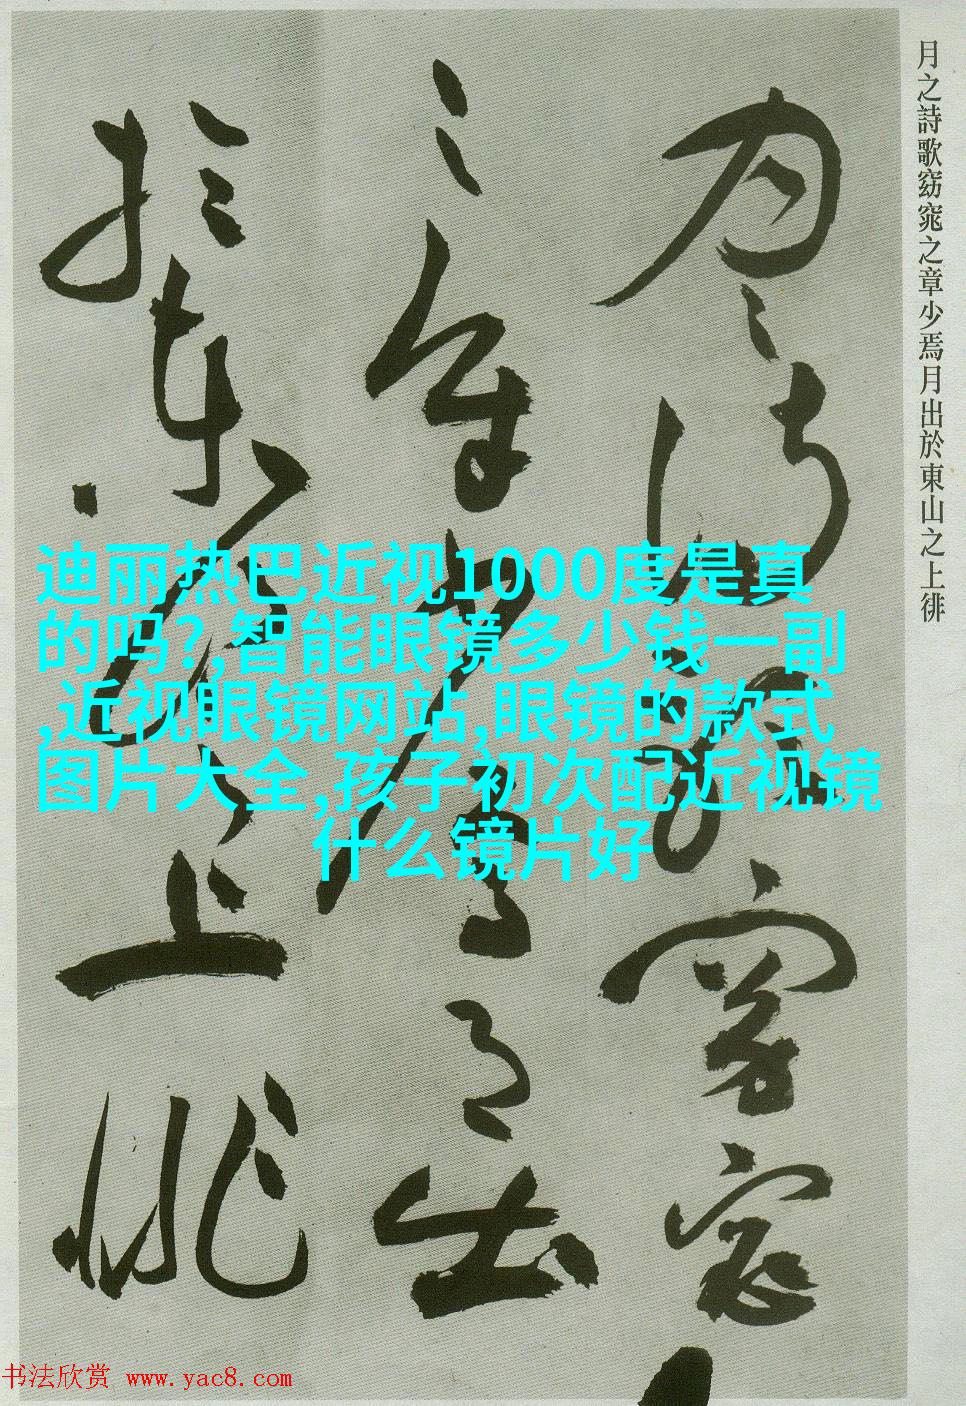 月之詩歌窈窕之章少焉月出於東山之上徘
月之詩歌窈窕
之章少焉月出
於東山之上徘
迪丽热巴近视1000度是真
的吗?,智能眼镜多少钱一副
,近视眼镜网站,眼镜的款式
图片大全,孩子初次配近视镜
什么镜片好
书法欣赏 www.yac8.com